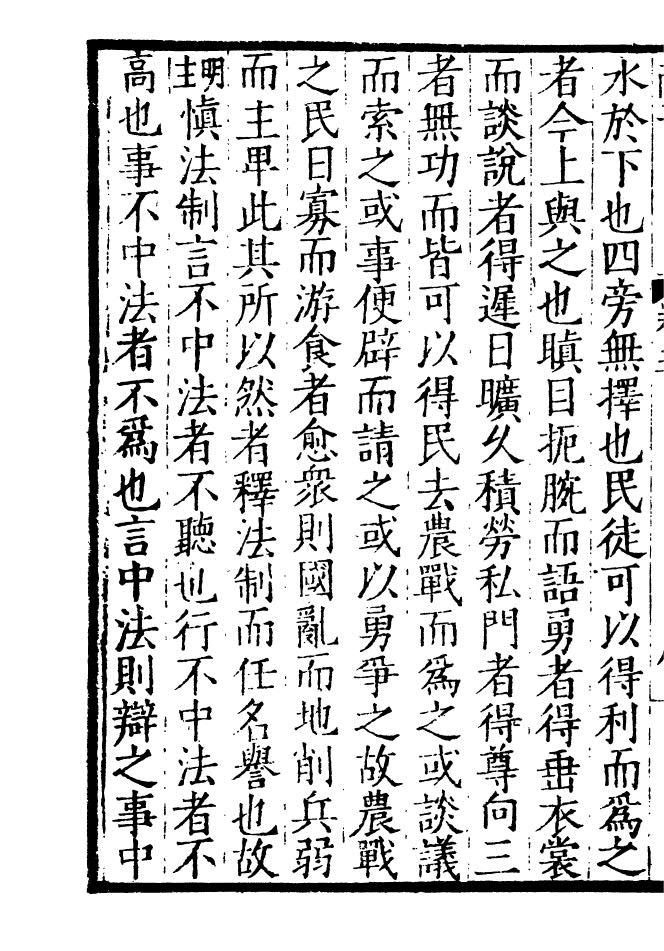 水於下也四旁無擇也民徒可以得利而爲之
者今上與之也瞋目扼腕而語勇者得垂衣裳
而談說者得遲日曠久積勞私門者得尊向三
者無功而皆可以得民去農戰而爲之或談議
而索之或事便辟而請之或以勇爭之故農戰
之民日寡而游食者愈衆則國亂而地削兵弱
而主卑此其所以然者釋法制而任名譽也故
明主慎法制言不中法者不聽也行不中法者不
高也事不中法者不爲也言中法則辯之事中